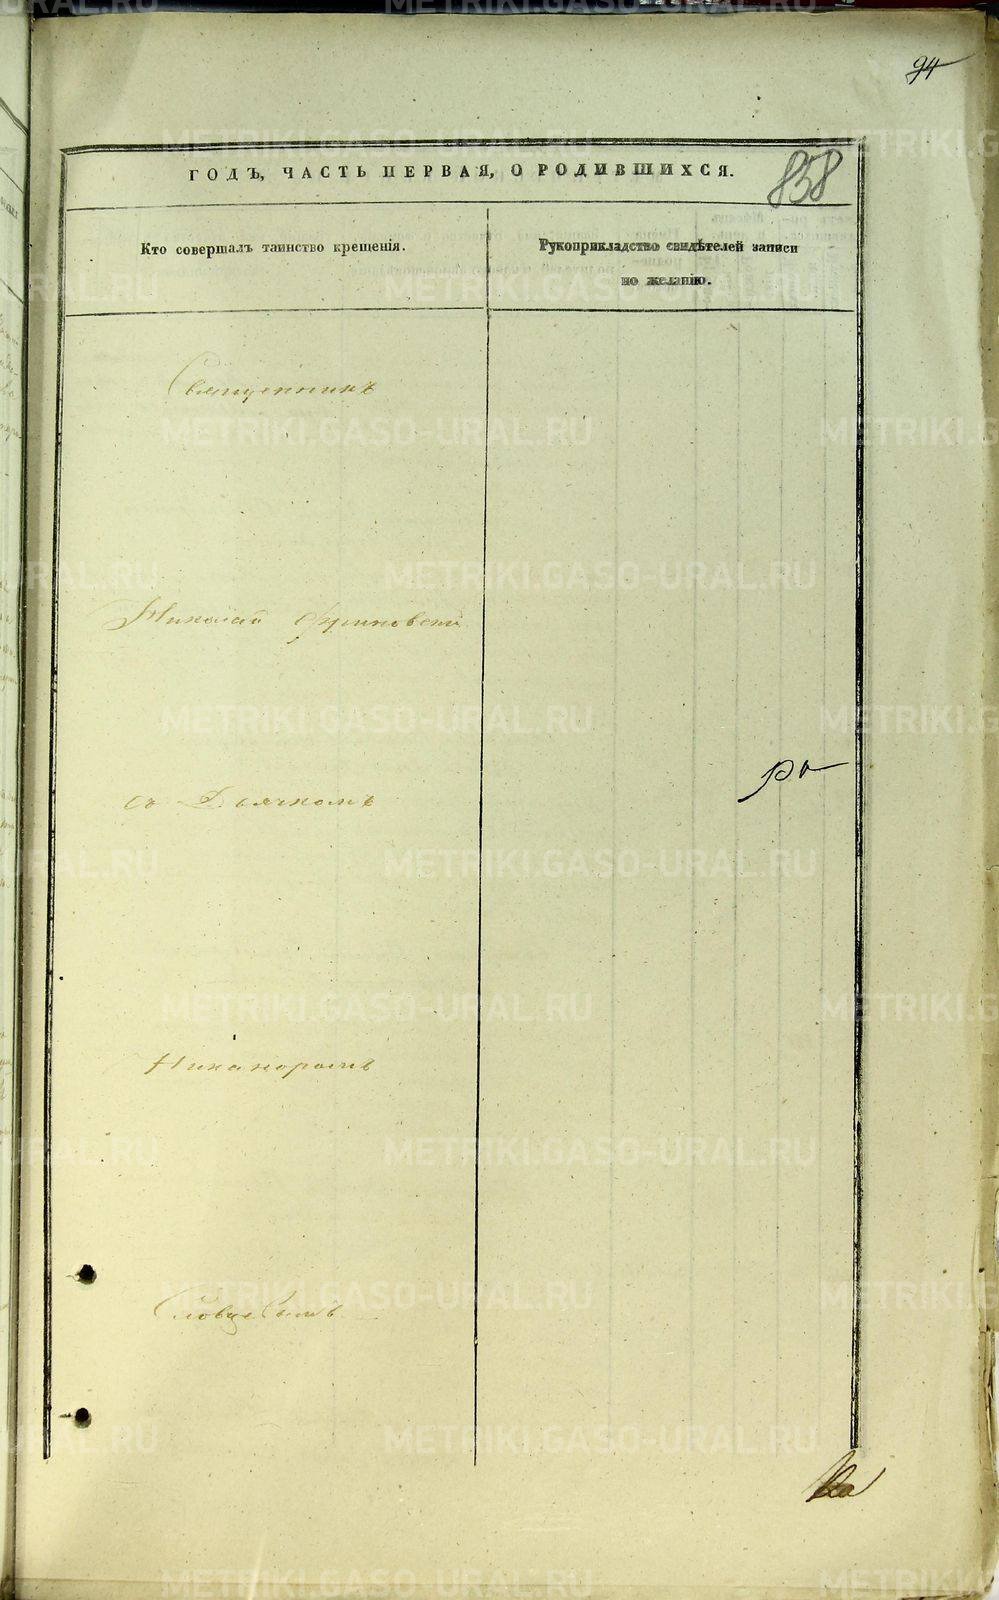 94
ГОДЪ, ЧАСТЬ ПЕРВАЯ, О РОДИВШИХСЯ.
858
Кто совершалъ таинство крещенія.
Рукоприкладство свидѣтелей записи
по желанію.
Священникъ
Николай
съ Дьячкомъ
Никаноромъ
METRIKI.GASO-URAL.RU